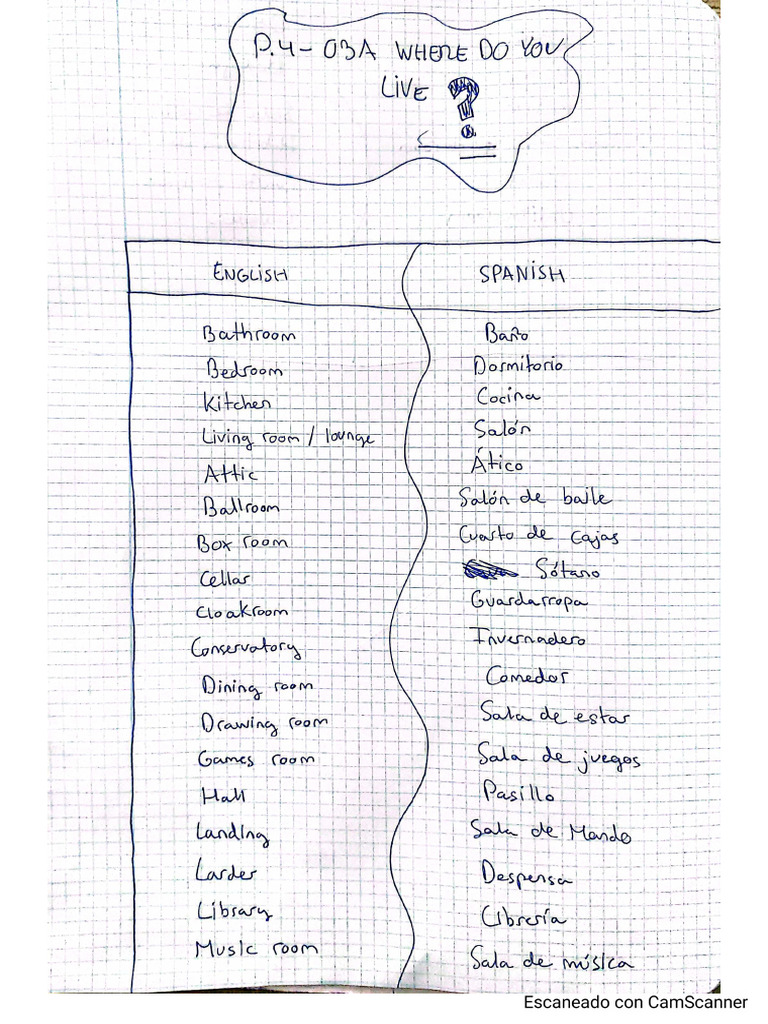 P.4 - 03A WHERE DO YOU
LIVE ?
ENGLISH SPANISH
Bathroom Baño
Bedroom Dormitorio
Kitchen Cocina
Living room / lounge Salón
Attic Ático
Ballroom Salón de baile
Box room Cuarto de cajas
Cellar Sótano
Cloakroom Guardarropa
Conservatory Invernadero
Dining room Comedor
Drawing room Sala de estar
Games room Sala de juegos
Hall Pasillo
Landing Sala de Mando
Larder Despensa
Library Librería
Music room Sala de música
Escaneado con CamScanner